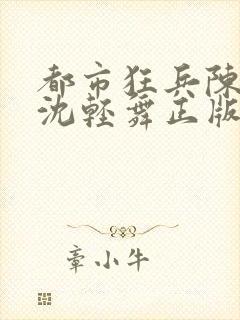 都市狂兵陳
沈輕舞正版
章小牛